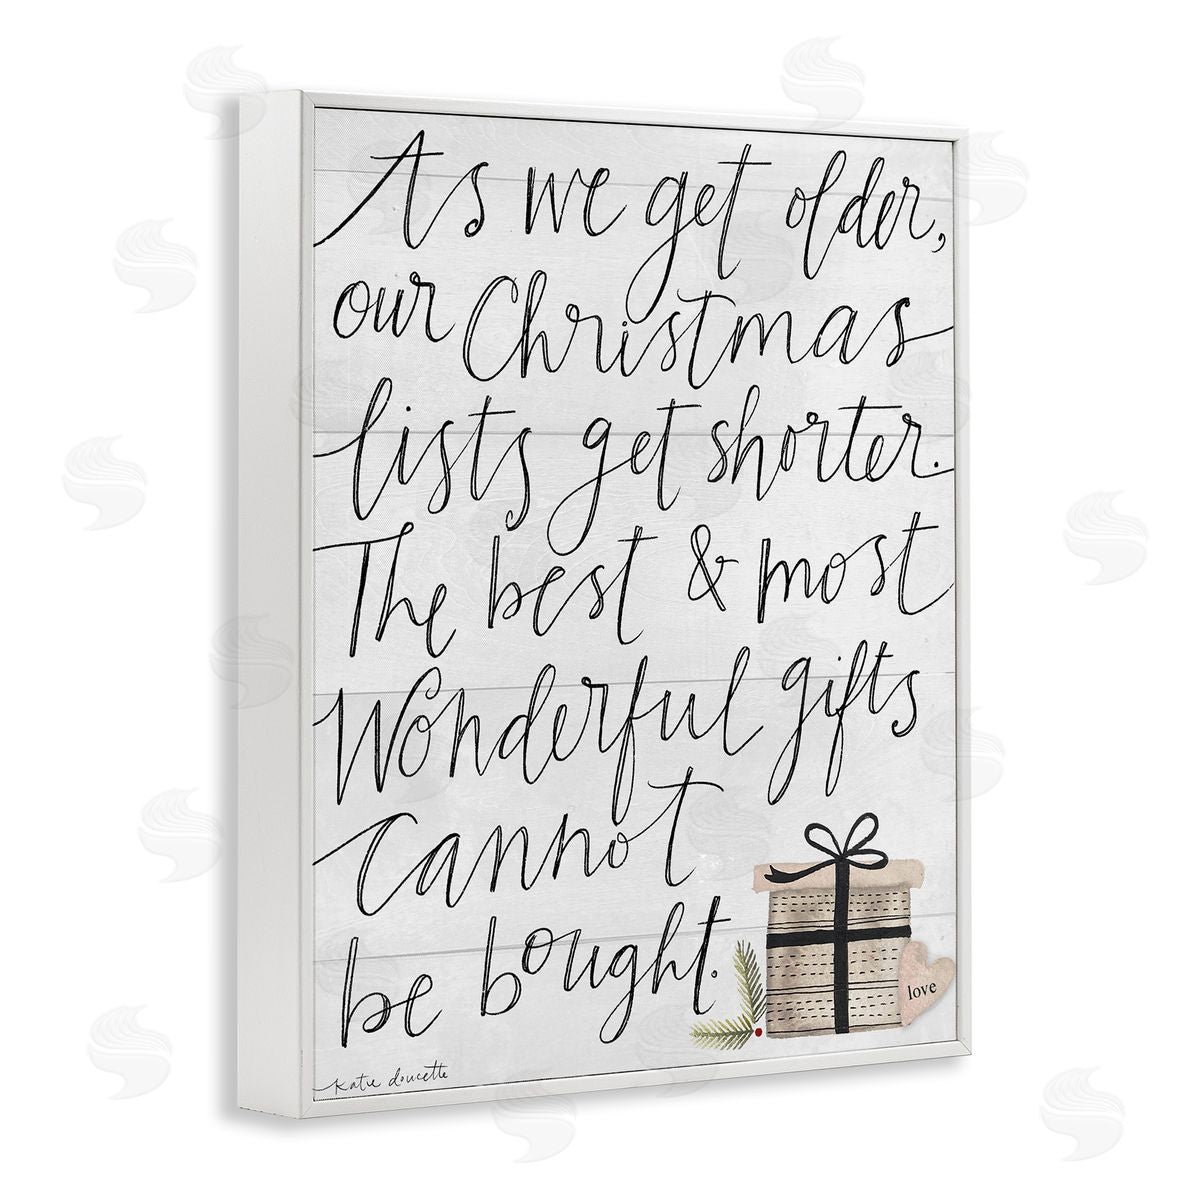 As we get older,
our Christmas
lists get shorter.
The best & most
Wonderful gifts
cannot
be bought.
love
katie doucette